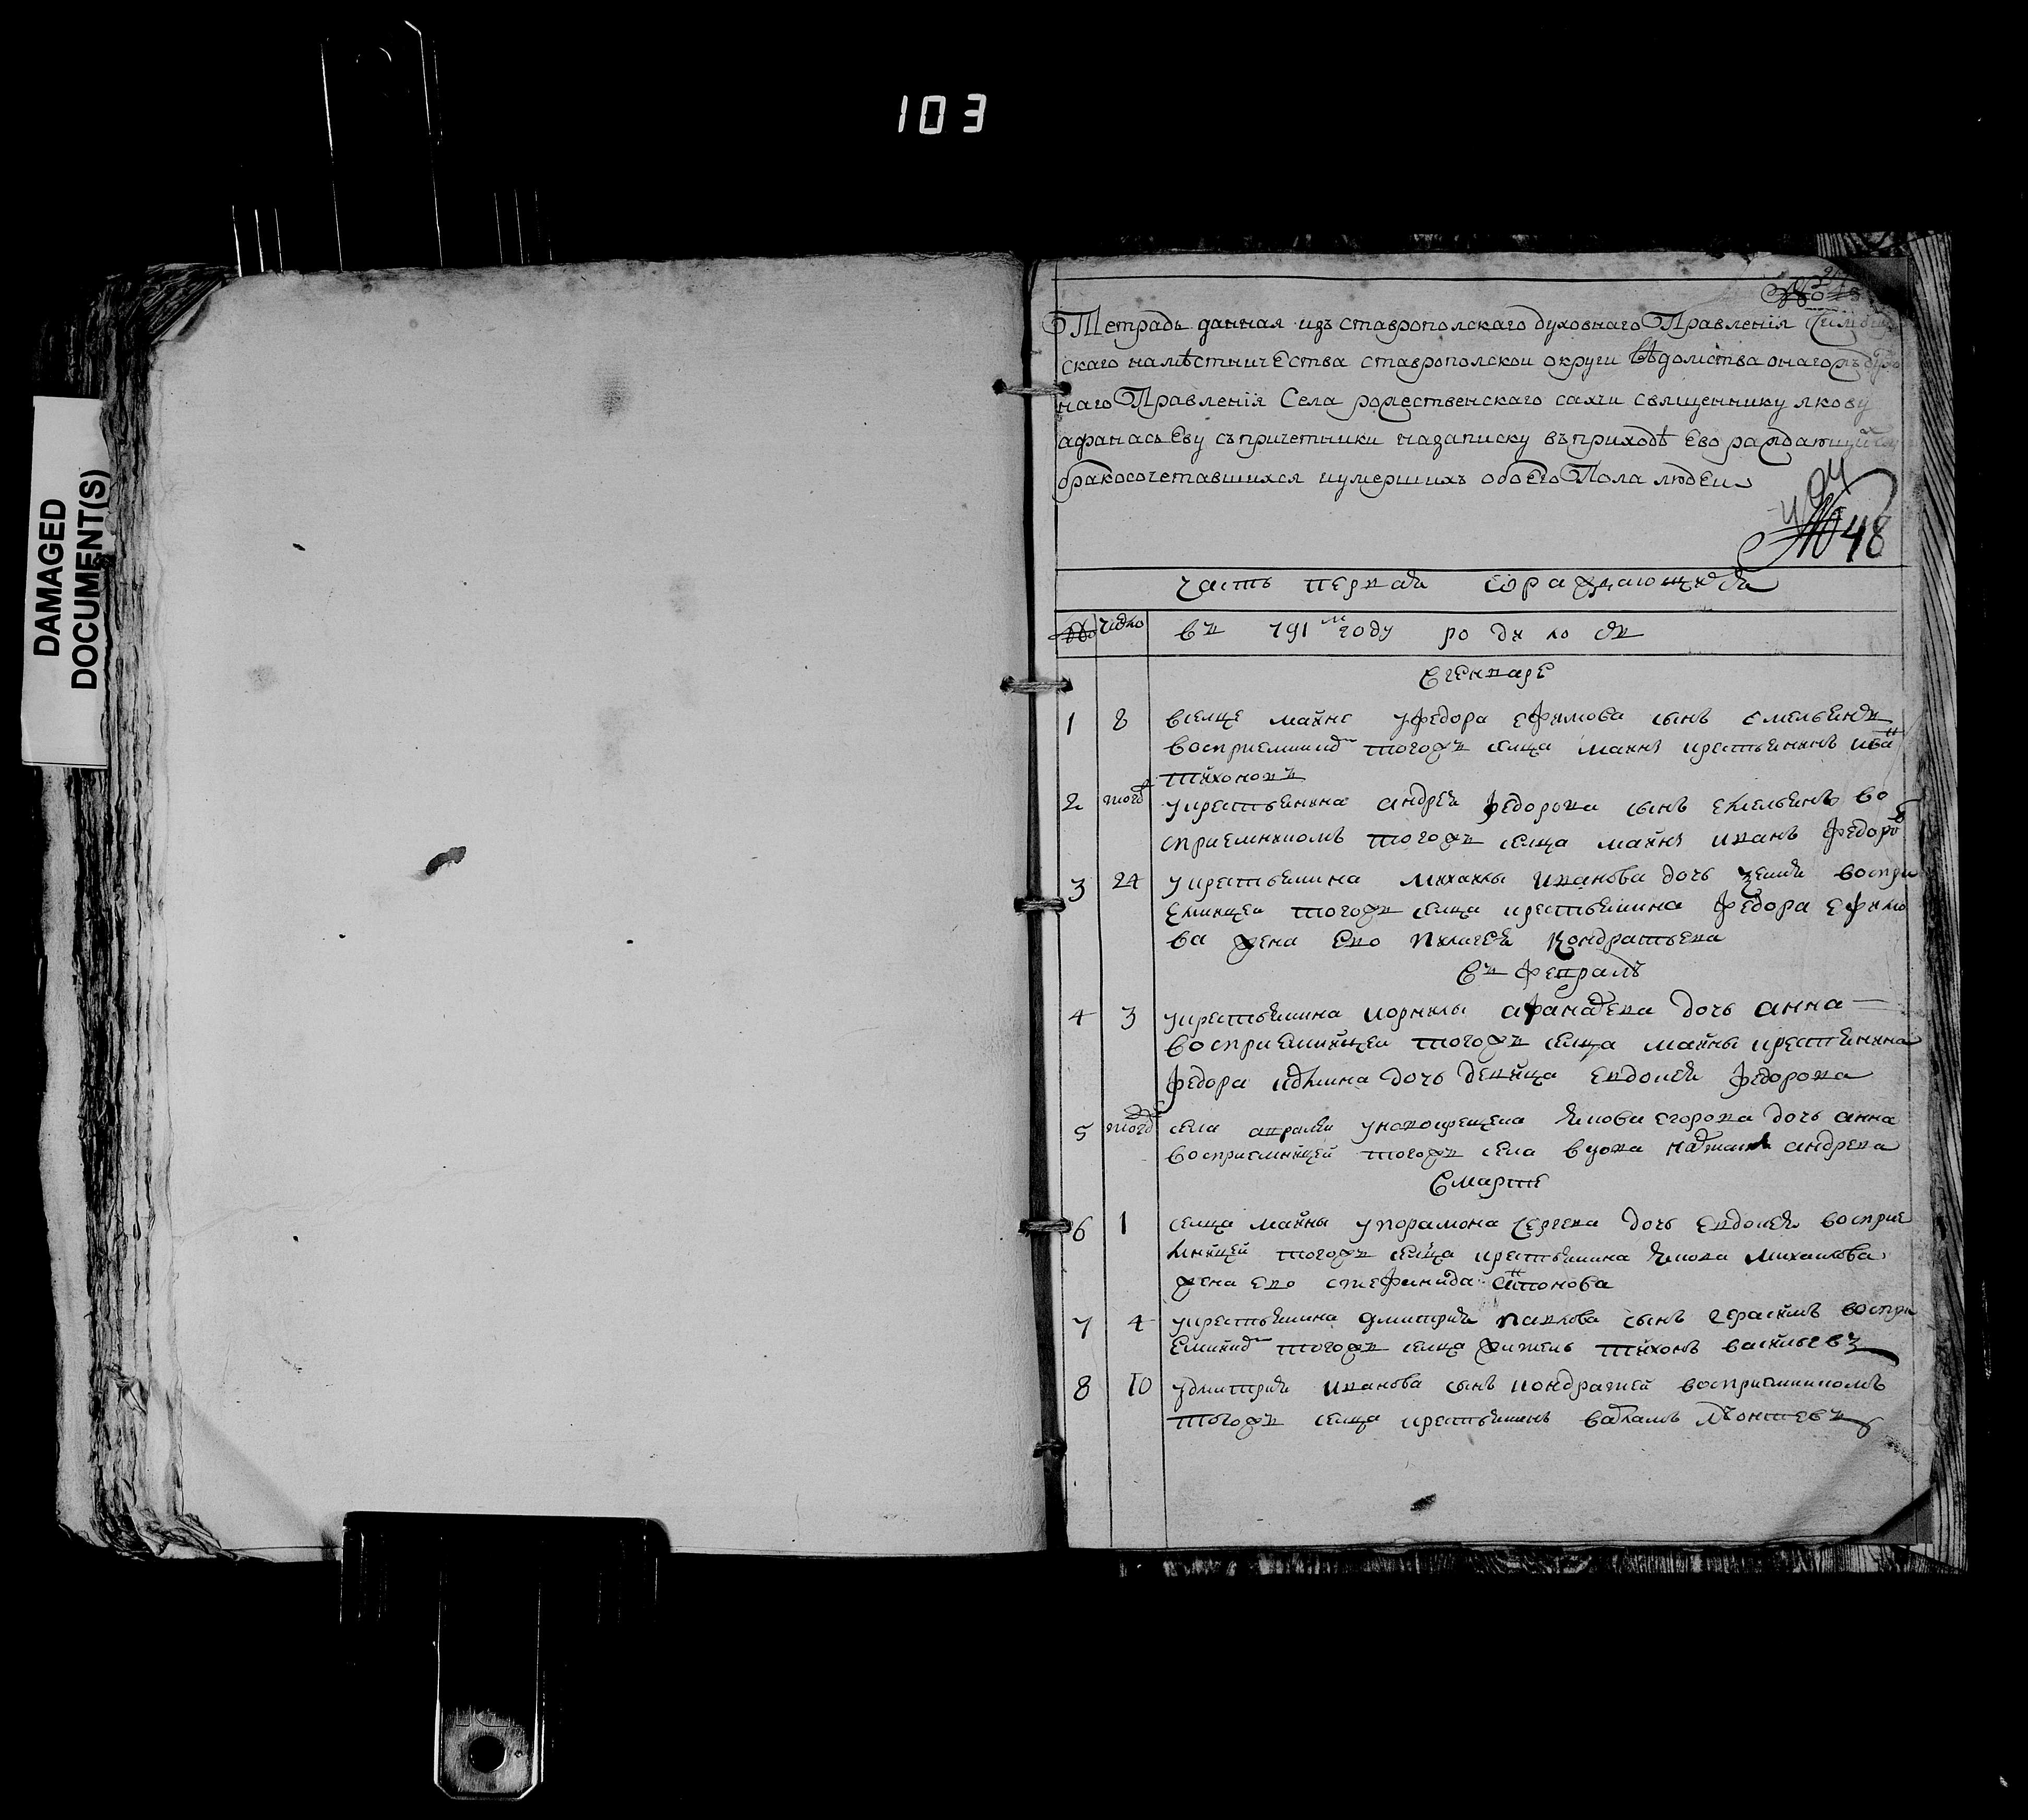 103
DAMAGED
DOCUMENT(S)
Тетрадь данная изъ ставрополскаго духовнаго Правленія
скаго намѣстничества ставрополскои округи вѣдомства онагожъ
наго Правленія Села рожественскаго сахчи священнику якову
афанасьеву съпричетники назаписку въприходѣ Ево
бракосочетавшихся иумершихъ обоЕго Пола людЕи
№ 48
часть первая
№ число въ 791 м году родилося
вгенваре
1 8 всельце майне уфедора ефимова сынъ емельянъ
восприемникомъ тогожъ селца майны крестьянинъ ива
тихоновъ
2 тогож укрестьянина андрея федорова сынъ емельянъ во
сприемникомъ тогожъ селца майны иванъ федоров
3 24 укрестьянина михаилы иванова дочь воспри
емницеи тогожъ селца крестьянина федора ефимо
ва жена ево кондратьева
въ февралѣ
4 3 укрестьянина корнилы афанасева дочь анна
восприемницеи тогожъ селца майны крестьянина
федора дочь девица евдокея федорова
5 тогож села уновокрещена якова егорова дочь анна
восприемницей тогожъ села андрева
вмарте
6 1 селца майны упорамона сергева дочь евдокея восприе
мницей тогожъ селца крестьянина якова михаилова
жена ево стефанида антонова
7 4 укрестьянина дмитрия павлова сынъ герасимъ воспри
емником тогожъ селца житель тихонъ васильевъ
8 10 удмитрия иванова сынъ кондратей восприемникомъ
тогожъ селца крестьянинъ леонтевъ